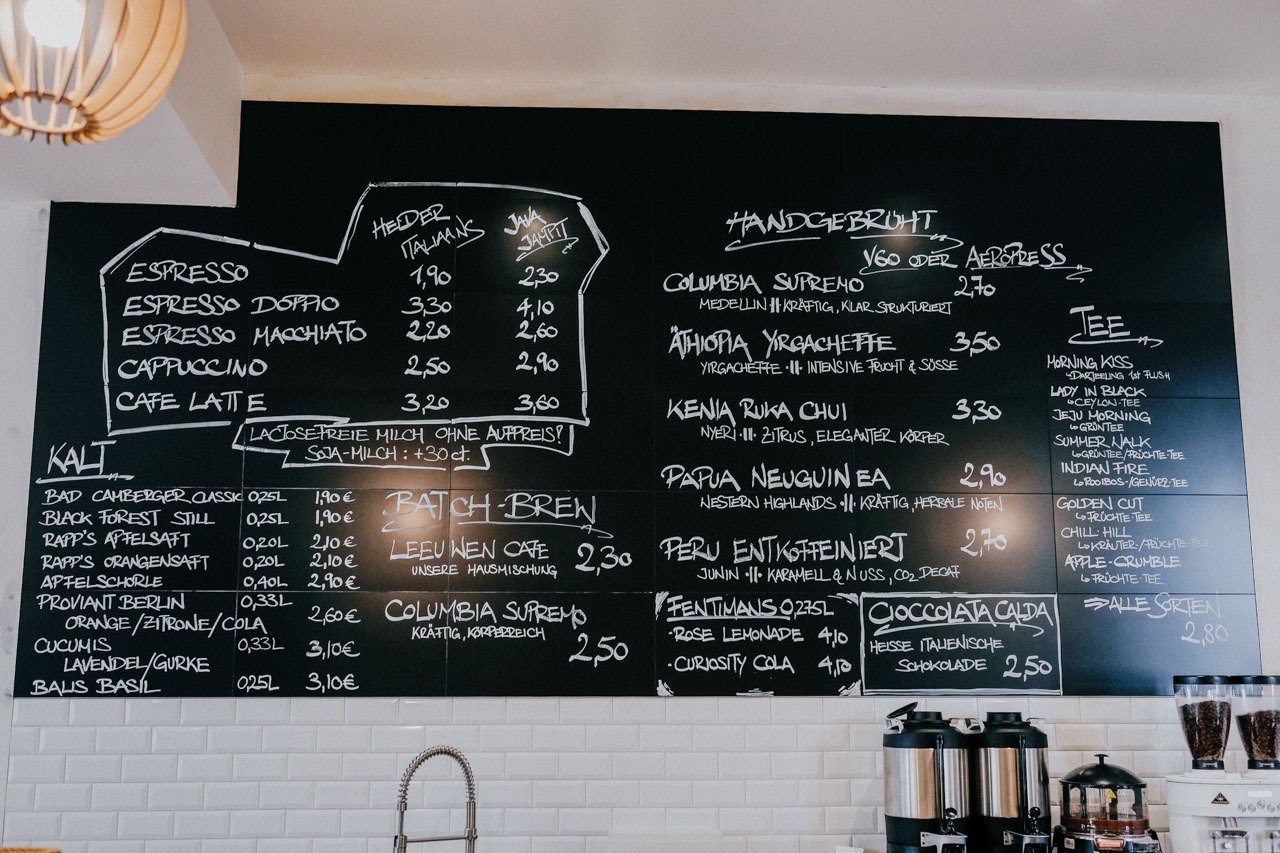 HEIDER ITALIAANS
JAVA JAMPIT
ESPRESSO 1,90 2,30
ESPRESSO DOPPIO 3,30 4,10
ESPRESSO MACCHIATO 2,20 2,60
CAPPUCCINO 2,50 2,90
CAFE LATTE 3,20 3,60
LACTOSEFREIE MILCH OHNE AUFPREIS!
SOJA-MILCH : +30 ct.
KALT
BAD CAMBERGER CLASSIC 0,25L 1,90 €
BLACK FOREST STILL 0,25L 1,90 €
RAPP'S APFELSAFT 0,20L 2,10 €
RAPP'S ORANGENSAFT 0,20L 2,10 €
APFELSCHORLE 0,40L 2,90 €
PROVIANT BERLIN 0,33L
ORANGE/ZITRONE/COLA 2,60€
CUCUMIS 0,33L 3,10€
LAVENDEL/GURKE
BALIS BASIL 0,25L 3,10€
BATCH-BREW
LEEUWEN CAFE 2,30
UNSERE HAUSMISCHUNG
COLUMBIA SUPREMO
KRÄFTIG, KÖRPERREICH
2,50
HANDGEBRÜHT
V60 ODER AEROPRESS
COLUMBIA SUPREMO 2,70
MEDELLIN · KRÄFTIG, KLAR STRUKTURIERT
ÄTHIOPIA YIRGACHEFFE 3,50
YIRGACHEFFE · INTENSIVE FRUCHT & SÜSSE
KENIA RUKA CHUI 3,30
NYERI · ZITRUS, ELEGANTER KÖRPER
PAPUA NEUGUINEA 2,90
WESTERN HIGHLANDS · KRÄFTIG, HERBALE NOTEN
PERU ENTKOFFEINIERT 2,70
JUNIN · KARAMELL & NUSS, CO2 DECAF
FENTIMANS 0,275L
·ROSE LEMONADE 4,10
·CURIOSITY COLA 4,10
CIOCCOLATA CALDA
HEISSE ITALIENISCHE
SCHOKOLADE 2,50
TEE
MORNING KISS
↳DARJEELING 1ST FLUSH
LADY IN BLACK
↳CEYLON-TEE
JEJU MORNING
↳GRÜNTEE
SUMMER WALK
↳GRÜNTEE/FRÜCHTE-TEE
INDIAN FIRE
↳ROOIBOS-/GEWÜRZ-TEE
GOLDEN CUT
↳FRÜCHTE-TEE
CHILL HILL
↳KRÄUTER-/FRÜCHTE-TEE
APPLE-CRUMBLE
↳FRÜCHTE-TEE
⇒ALLE SORTEN
2,80